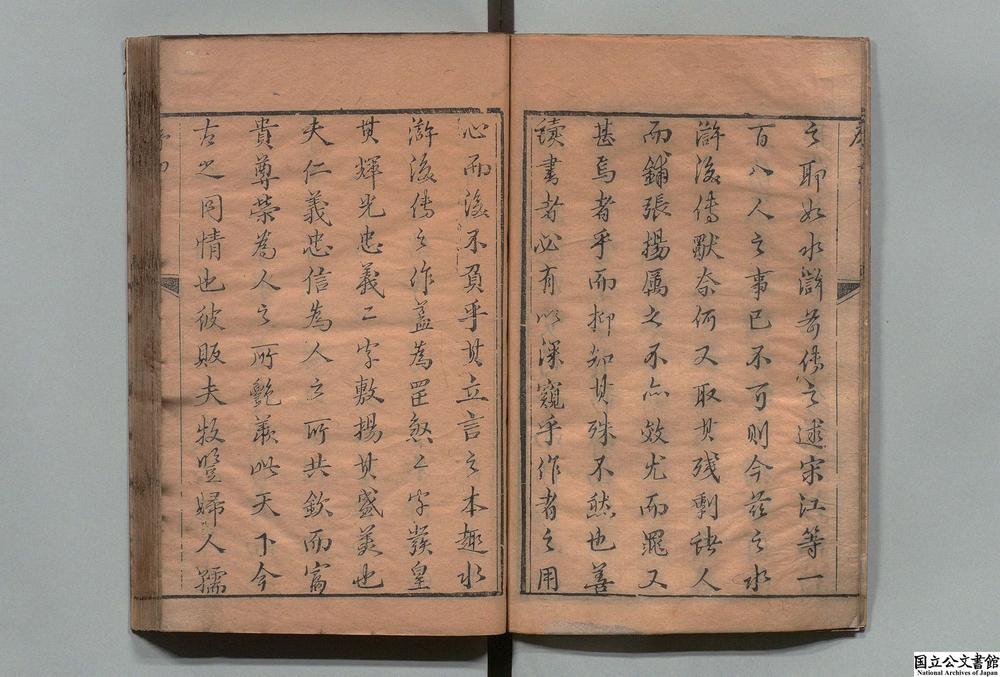 之耶如水滸前傳之述宋江等一
百八人之事已不可則今茲之水
滸後傳獸奈何又取其殘剩諸人
而鋪張揚厲之不亦效尤而罪又
甚焉者乎而抑知其殊不然也善
讀書者必有以深窺乎作者之用
心而後不負乎其立言之本趣水
滸後傳之作蓋為罡煞二字發皇
其輝光忠義二字敷揚其盛美也
夫仁義忠信為人之所共欽而富
貴尊榮為人之所艷羨此天下今
古之同情也彼販夫牧豎婦人孺
国立公文書館
National Archives of Japan